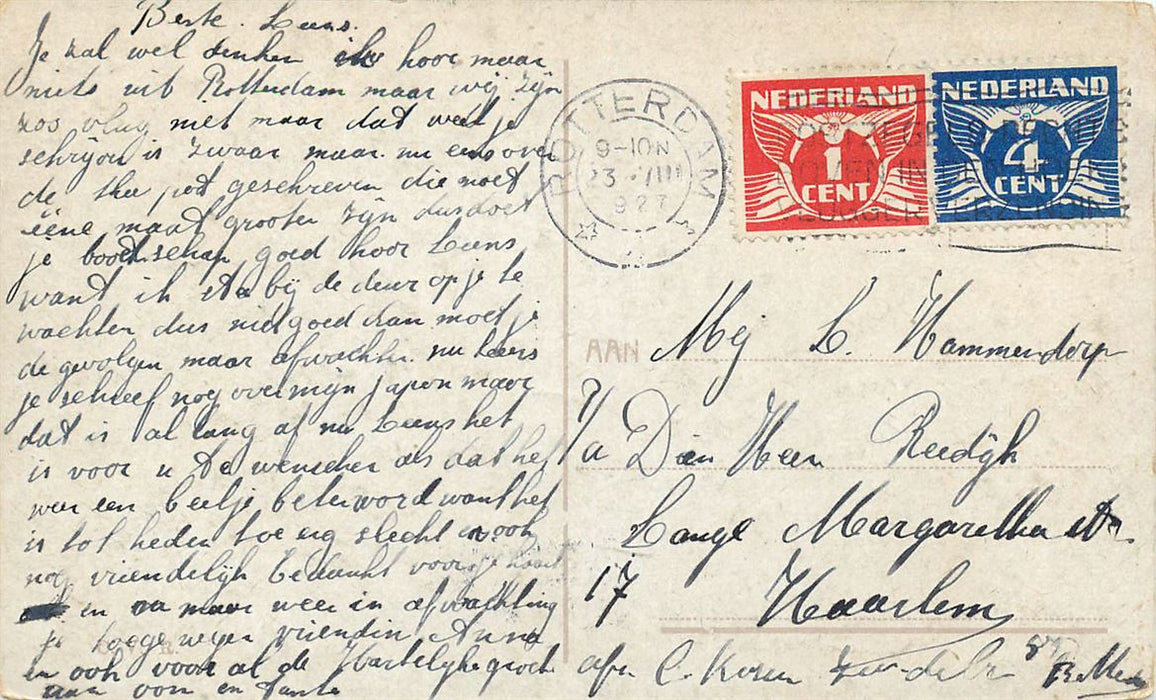 Beste Leens.
Je zal wel denken ik hoor maar
niets uit Rotterdam maar wij zijn
zoo vlug niet maar dat weet je
schrijven is zwaar maar nu eens over
de pot geschreven die moet
eene maat grooter zijn dus doet
je boodschap goed hoor Leens
want ik sta bij de deur op je te
wachten dus niet goed dan moet je
de gevolgen maar afwachten nu Leens
je schreef nog over mijn japon maar
dat is al lang af nu Leens het
is voor u te wenschen als dat het
weer een beetje beter word want het
is tot heden toe erg slecht en ook
nog vriendelijk bedankt voor je kaart
en nu maar weer in afwachting
je toegenegen vriendin Anna
en ook voor al de Hartelijke groet
aan oom en tante
ROTTERDAM
9-10N
23 VIII
1927
NEDERLAND
1
CENT
NEDERLAND
4
CENT
AAN Mej L. Hammendorp
p/a Den Heer Reedijk
Lange Margaretha str
17
Haarlem
afz. C. Kosen